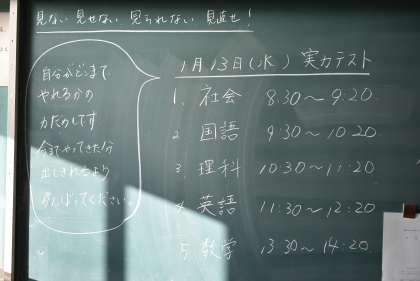 見ない 見せない 見られない 見直せ!
1月13日(水) 実力テスト
1. 社会 8:30～9:20
2. 国語 9:30～10:20
3. 理科 10:30～11:20
4. 英語 11:30～12:20
5. 数学 13:30～14:20
自分がどこまで
やれるかの
力だめしです
今までやってきた分
出しきれるよう
がんばってください。